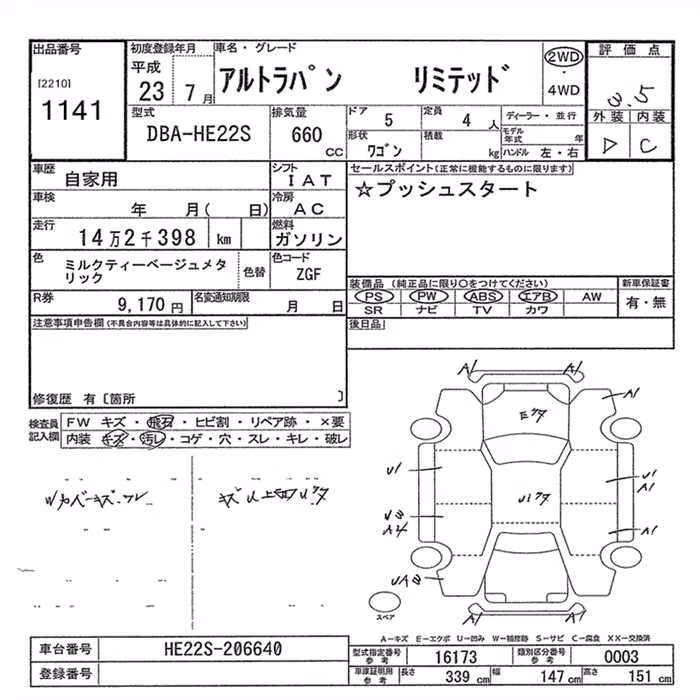 出品番号
[2210]
1141
初度登録年月
平成
23 7月
車名・グレード
アルトラパン リミテッド
2WD
・
4WD
評価点
3.5
外装 内装
D C
型式
DBA-HE22S
排気量
660
CC
ドア
5
定員
4 人
ディーラー・並行
形状
ワゴン
積載
kg
モデル年式 年
ハンドル 左・右
車歴
自家用
シフト
IAT
車検
年 月( 日)
冷房
AC
走行
14万2千398 km
燃料
ガソリン
色
ミルクティーベージュメタ
リック
色替
色コード
ZGF
R券
9,170円
名変通知期限
月 日
セールスポイント(正常に機能するものに限ります)
☆プッシュスタート
装備品(純正品に限り○をつけてください)
PS PW ABS エアB AW
SR ナビ TV カワ
新車保証書
有・無
後日品
注意事項申告欄(不具合内容等は具体的に記入して下さい)
修復歴 有〔箇所 〕
検査員
記入欄
FW キズ・飛石・ヒビ割・リペア跡・×要
内装 キズ・汚レ・コゲ・穴・スレ・キレ・破レ
A1 A1
A1
U1
U1
A1
A1
A1 A1
スペア
A−キズ E−エクボ U−凹み W−補修跡 S−サビ C−腐食 XX−交換済
車台番号
HE22S-206640
登録番号
型式指定番号
参考
16173
類別区分番号
参考
0003
車庫証明用
参考
長さ 339 cm 幅 147 cm 高さ 151 cm